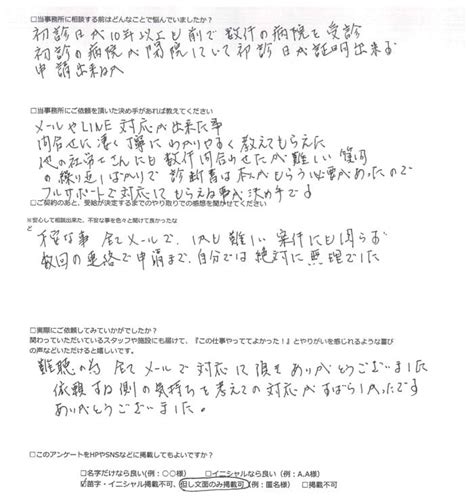 □当事務所に相談する前はどんなことで悩んでいましたか?
初診日が10年以上も前で数件の病院を受診
初診の病院が閉院していて初診日が証明出来ず
申請出来ねか
□当事務所にご依頼を頂いた決め手があれば教えてください
メールやLINE対応が出来た事
問合せに凄く丁寧にわかりやすく教えてもらえた
他の社労士さんにも数件問合わせたが難しい
の繰り返しばかりで診断書は本人がもらう必要があったので
フルサポートで対応してもらえる事が決め手です
□ご契約のあと、受給が決定するまでのやり取りでの感想を聞かせてください
※安心して相談出来た、不安な事を色々と聞けて良かったな
ど
不安な事全てメールで、しかも難しい案件にも関らず
数回の連絡で申請まで、自分では絶対に無理でした
□実際にご依頼してみていかがでしたか?
関わっていただいているスタッフや施設にも届けて、『この仕事やっててよかった!』とやりがいを感じれるような喜び
の声などいただけると嬉しいです。
難聴の為全てメールで対応して頂きありがとうございました
依頼する側の気持ちを考えての対応がすばらしかったです
ありがとうございました。
□このアンケートをHPやSNSなどに掲載してもよいですか?
□名字だけなら良い(例:○○様) □イニシャルなら良い(例:A.A様)
☑苗字・イニシャル掲載不可、但し文面のみ掲載可(例:匿名様) □掲載不可